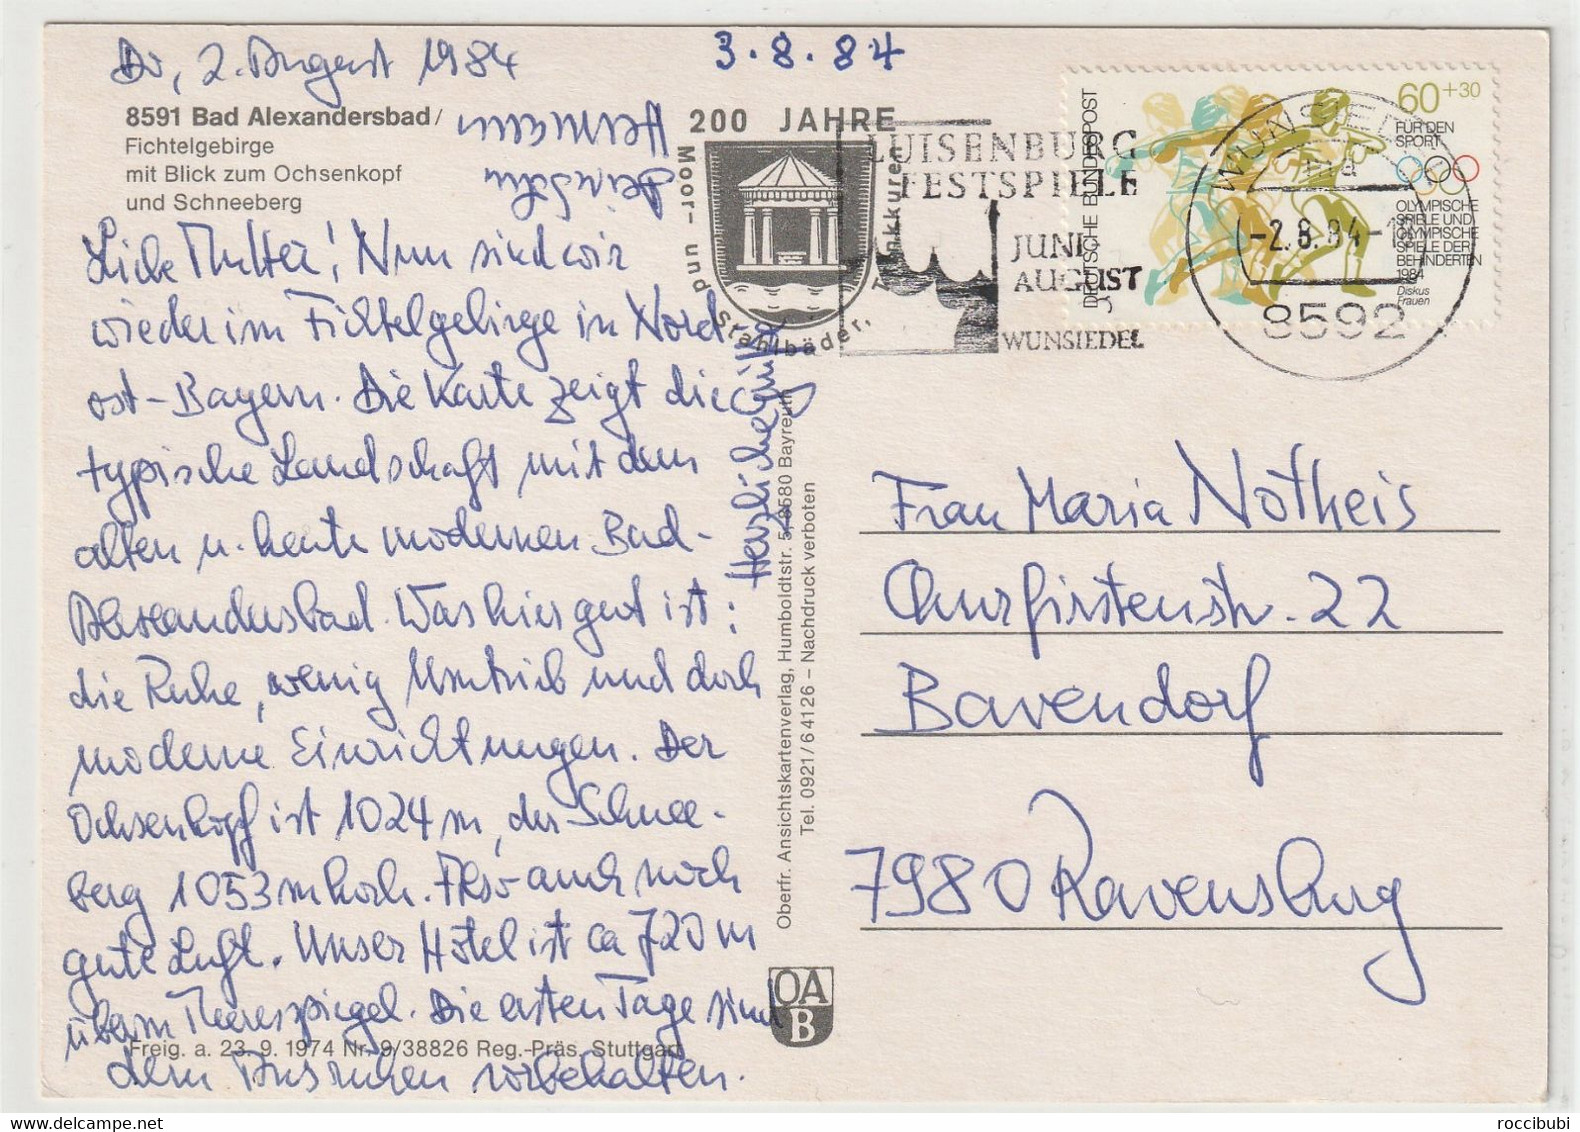 Do, 2. August 1984
3.8.84
8591 Bad Alexandersbad/
Fichtelgebirge
mit Blick zum Ochsenkopf
und Schneeberg
Liebe Mutter! Nun sind wir
wieder im Fichtelgebirge in Nord-
ost-Bayern. Die Karte zeigt die
typische Landschaft mit dem
alten u. heute modernen Bad-
Alexandersbad. Was hier gut ist:
die Ruhe, wenig Umtrieb und doch
moderne Einrichtungen. Der
Ochsenkopf ist 1024 m, der Schnee-
berg 1053 m hoch. Also auch noch
gute Luft. Unser Hotel ist ca 720 m
überm Meeresspiegel. Die ersten Tage sind
dem Ausruhen vorbehalten.
Herzliche
Hermann
Freig. a. 23. 9. 1974 Nr. 9/38826 Reg.-Präs. Stuttgart
200 JAHRE
Moor- und Stahlbäder, Trinkkuren
Oberfr. Ansichtskartenverlag, Humboldtstr. 5, 8580 Bayreuth
Tel. 0921/64126 – Nachdruck verboten
OA
B
LUISENBURG
FESTSPIELE
JUNI
AUGUST
WUNSIEDEL
WUNSIEDEL
-2.8.84-
8592
DEUTSCHE BUNDESPOST
60+30
FÜR DEN
SPORT
OLYMPISCHE
SPIELE UND
OLYMPISCHE
SPIELE DER
BEHINDERTEN
1984
Diskus
Frauen
Frau Maria Notheis
Churfirstenstr. 22
Bavendorf
7980 Ravensburg
© roccibubi